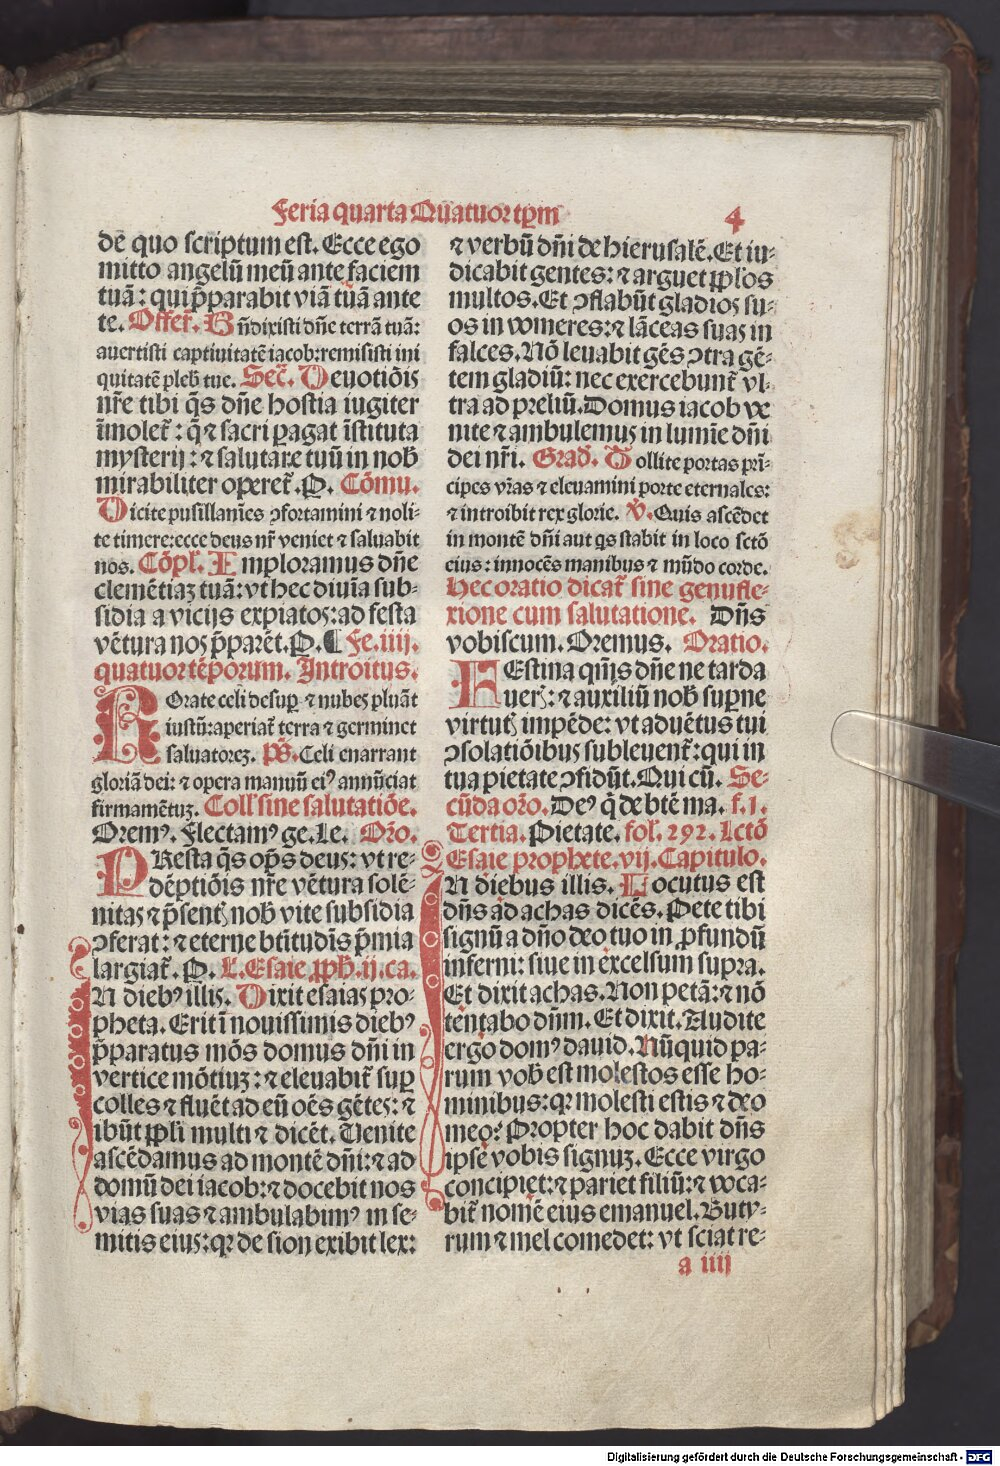 Feria quarta Quatuor tꝑm
4
dē quo scriptum est. Ecce ego
mitto angelū meū ante faciem
tuā: qui p̄parabit viā tuā ante
te. Offert̄. Bn̄dixisti dn̄e terrā tuā:
auertisti captiuitatē iacob: remisisti ini
quitatē pleb̄ tue. Sec̄. Deuotiōis
nr̄e tibi q̄s dn̄e hostia iugiter
īmolet̄: q̄ ⁊ sacri ꝑagat īstituta
mysterij: ⁊ salutare tuū in nob̄
mirabiliter operet̄. P. Cōmu.
Dicite pusillanīes ꝯfortamini ⁊ noli-
te timere: ecce deus nr̄ veniet ⁊ saluabit
nos. Cōpl̄. Imploramus dn̄e
clemētiaꝫ tuā: vt hec diuīa sub-
sidia a vicijs expiatoꝫ: ad festa
vētura noꝫ p̄parēt. P. ¶ Fe. iiij.
quatuor tēporum. Introitus.
ROrate celi desuꝑ ⁊ nubeꝫ pluāt
iustū: aperiat̄ terra ⁊ germinet
saluatoreꝫ. pš. Celi enarrant
gloriā dei: ⁊ opera manuū eiꝰ annūciat
firmamētuꝫ. Coll' sine salutatiōe.
Oremꝰ. Flectamꝰ ge. Le. Oro.
PResta q̄s oꝑs deus: vt re-
dēptiōis nr̄e vētura solē-
nitas ⁊ p̄sentꝫ nob̄ vite subsidia
ꝯferat: ⁊ eterne btītudīs p̄mia
largiat̄. P. L. Esaie ꝓph̄. ij. ca.
IN diebꝰ illis. Dixit esaias pro-
pheta. Erit ī nouissimis diebꝰ
p̄paratus mōs domus dn̄i in
vertice mōtiuꝫ: ⁊ eleuabit̄ suꝑ
colles ⁊ fluēt ad eū oēs gētes: ⁊
ibūt ꝓpl̄i multi ⁊ dicēt. Uenite
ascēdamus ad montē dn̄i: ⁊ ad
domū dei iacob: ⁊ docebit nos
vias suas ⁊ ambulabimꝰ in se-
mitis eius: qꝛ de sion exibit lex:
⁊ verbū dn̄i de hierusalē. Et iu-
dicabit gentes: ⁊ arguet ꝓpl̄os
multos. Et ꝯflabūt gladios su-
os in vomeres: ⁊ lāceas suas in
falces. Nō leuabit gēs ꝯtra gē-
tem gladiū: nec exercebunt̄ vl-
tra ad preliū. Domus iacob ve
nite ⁊ ambulemus in lumīe dn̄i
dei nr̄i. Grad̄. Tollite portas prī-
cipes vr̄as ⁊ eleuamini porte eternales:
⁊ introibit rex glorie. v̄. Quis ascēdet
in montē dn̄i aut qs stabit in loco sctō
eius: innocēs manibus ⁊ mūdo corde.
Hec oratio dicat̄ sine genufle-
xione cum salutatione. Dn̄s
vobiscum. Oremus. Oratio.
FEstina qn̄js dn̄e ne tarda
ueꝝ: ⁊ auxiliū nob̄ suꝑne
virtutꝫ impēde: vt aduētus tui
ꝯsolatiōibus subleuent̄: qui in
tua pietate ꝯfidūt. Qui cū. Se-
cūda oro. Deꝰ q̄ de btē ma. f. 1.
Tertia. Pietate. fol. 292. Lctō
Esaie prophete. vij. Capitulo.
IN diebus illis. Locutus est
dn̄s ad achas dicēs. Pete tibi
signū a dn̄o deo tuo in ꝓfundū
inferni: siue in excelsum supra.
Et dixit achas. Non petā: ⁊ nō
tentabo dn̄m. Et dixit. Audite
ergo domꝰ dauid. Nūquid pa-
rum vob̄ est molestos esse ho-
minibus: qꝛ molesti estis ⁊ deo
meo? Propter hoc dabit dn̄s
ipse vobis signuꝫ. Ecce virgo
concipiet: ⁊ pariet filiū: ⁊ voca-
bit̄ nomē eius emanuel. Buty-
rum ⁊ mel comedet: vt sciat re-
a iiij
Digitalisierung gefördert durch die Deutsche Forschungsgemeinschaft - DFG